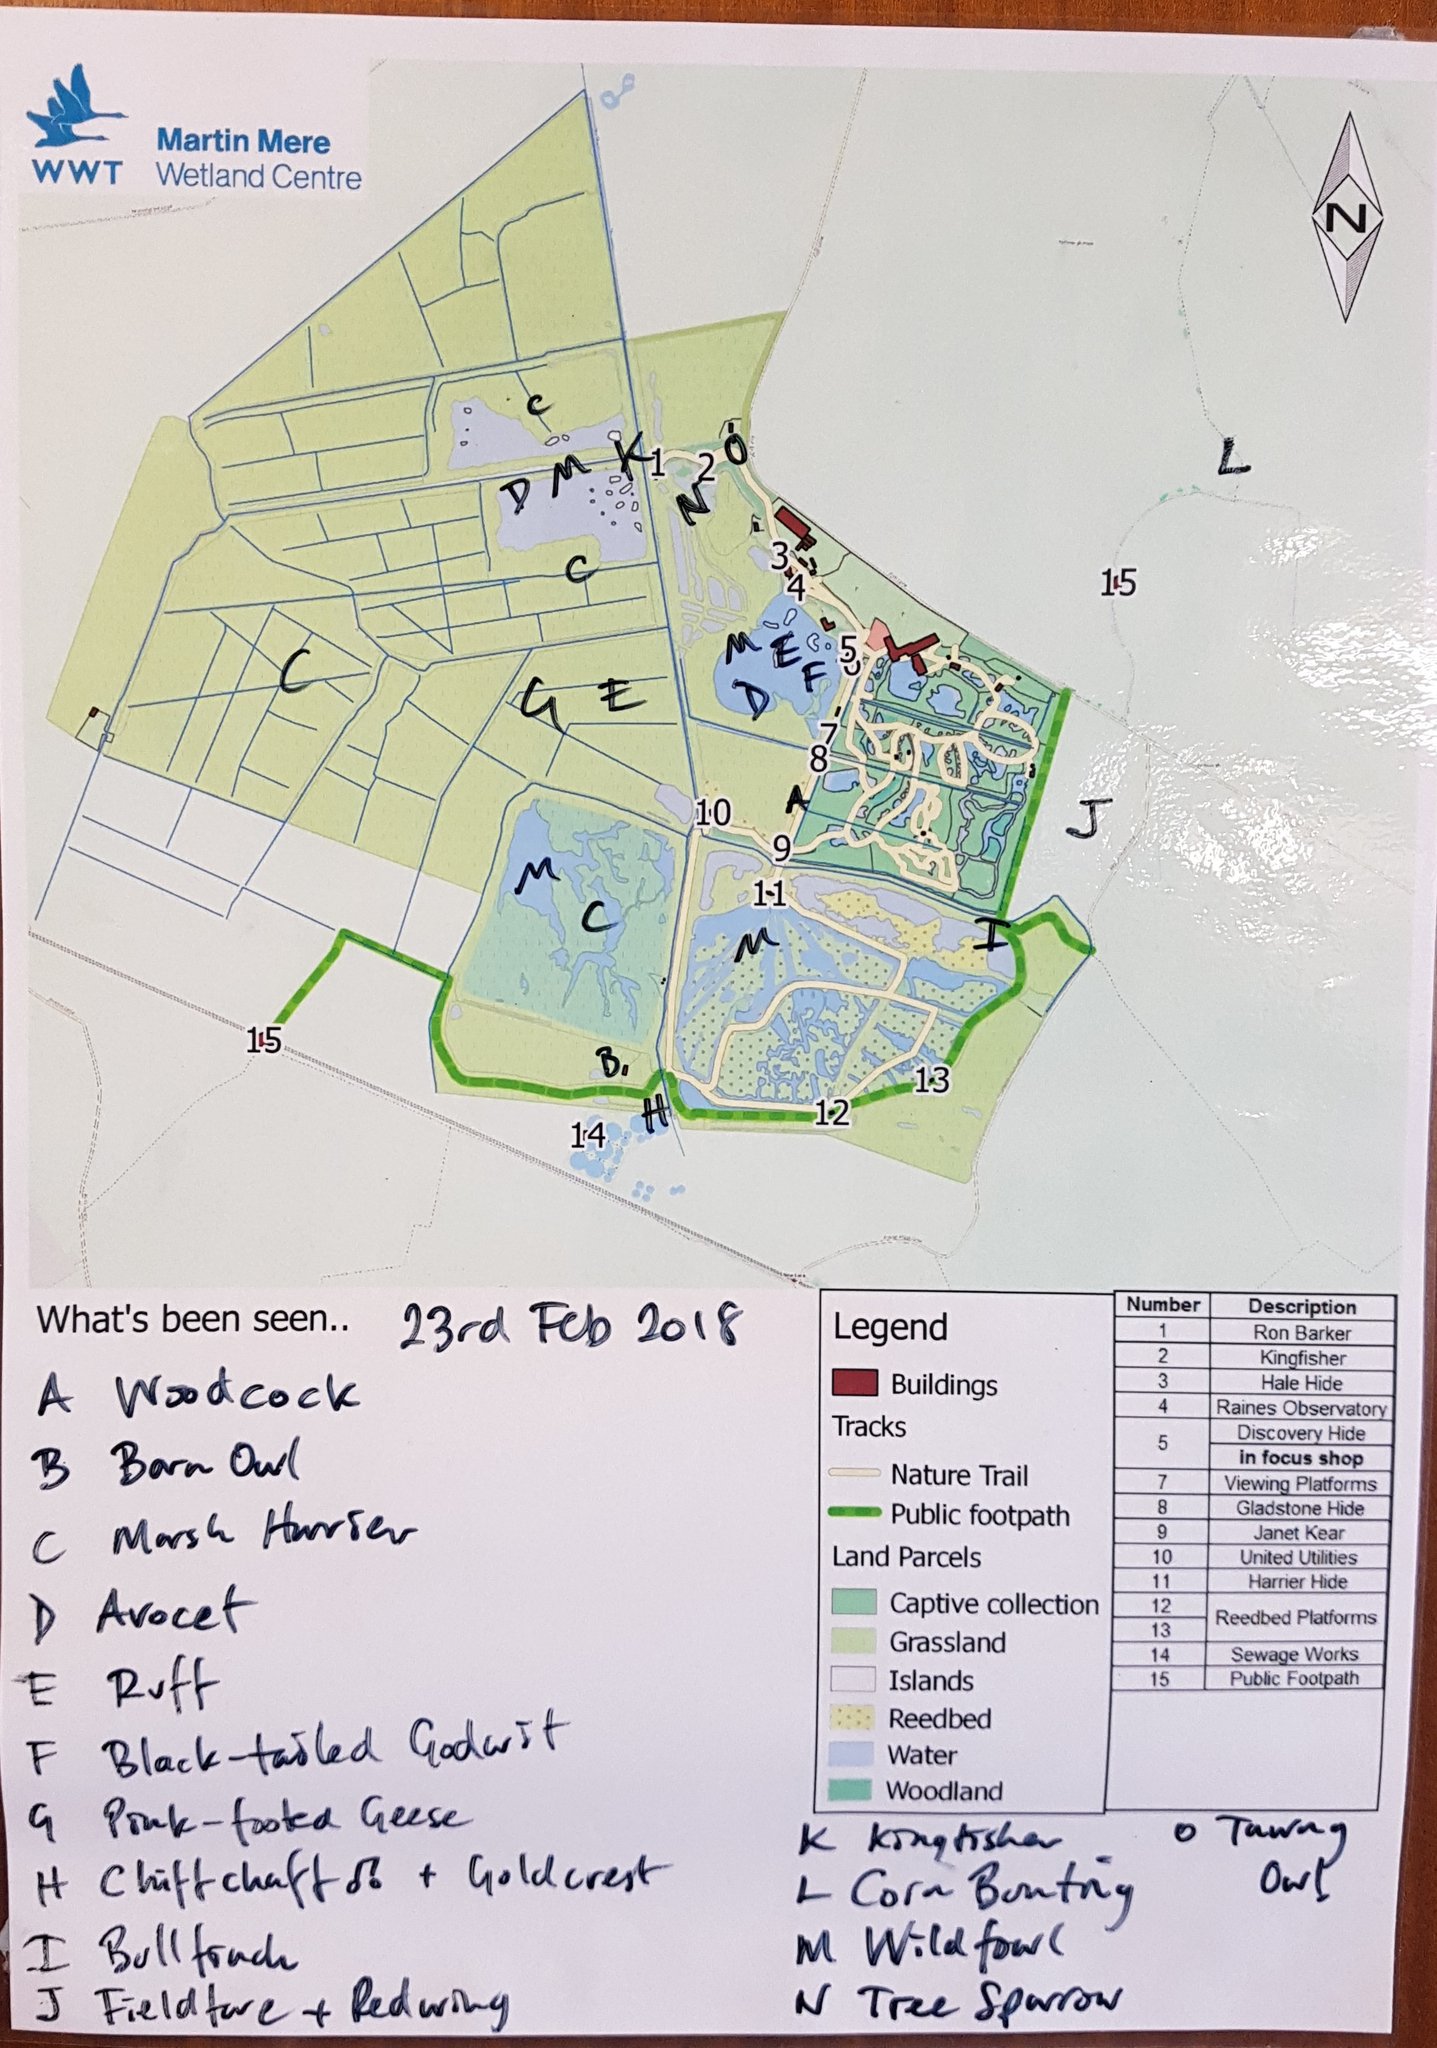 WWT
Martin Mere
Wetland Centre
N
C
D M K 1 2 O
N
L
C
3
4
15
M E 5
F
D
C
G E
7
8
A
10
J
9
M
11
C
M
I
15
B
13
H
12
14
What's been seen.. 23rd Feb 2018
A Woodcock
B Barn Owl
C Marsh Harrier
D Avocet
E Ruff
F Black-tailed Godwit
G Pink-footed Geese
H Chiffchaff + Goldcrest
I Bullfinch
J Fieldfare + Redwing
K Kingfisher
L Corn Bunting
M Wildfowl
N Tree Sparrow
O Tawny
Owl
Legend
Buildings
Tracks
Nature Trail
Public footpath
Land Parcels
Captive collection
Grassland
Islands
Reedbed
Water
Woodland
Number Description
1 Ron Barker
2 Kingfisher
3 Hale Hide
4 Raines Observatory
5 Discovery Hide
in focus shop
7 Viewing Platforms
8 Gladstone Hide
9 Janet Kear
10 United Utilities
11 Harrier Hide
12 Reedbed Platforms
13
14 Sewage Works
15 Public Footpath